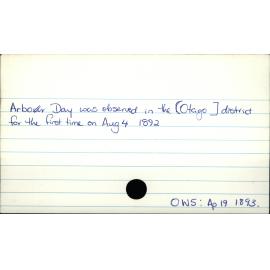 Arbor Day was observed in the [Otago] district
for the first time on Aug 4 1892
OWS: Ap 19 1893.